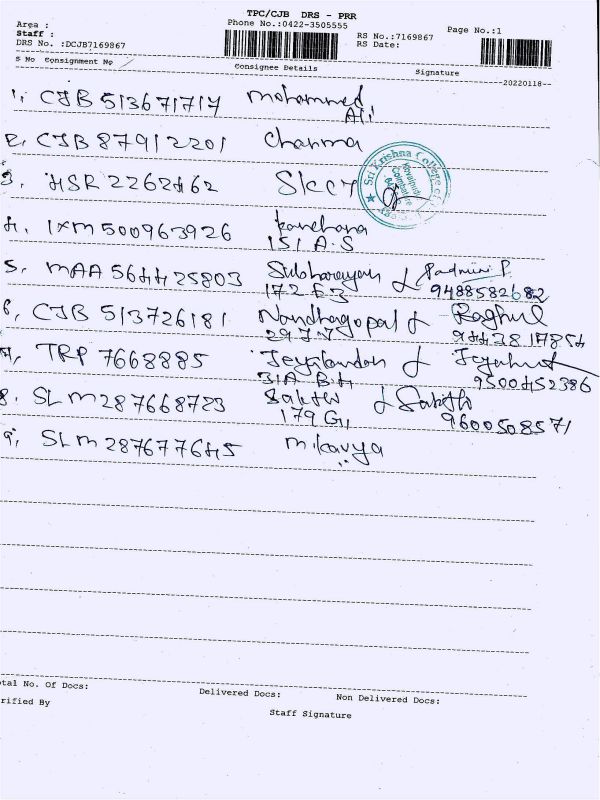 TPC/CJB DRS - PRR
Area :
Phone No.:0422-3505555
Page No.:1
Staff :
RS No.:7169867
DRS No. :DCJB7169867
RS Date:
S No Consignment No
Consignee Details
Signature
20220118
1, CJB 513671717 Mohammed
Ali
2, CJB 87912201 Charma
3. HSR 2262462 SKCCT
Sri Krishna College of
4. IXM 500963926 Kanchana
151 A.S
5. MAA 564425803 Subbarayan & Padmini P.
172 E3 9488582682
6, CJB 513726181 Nandhagopal & Raghul
29 J J 9443817854
7, TRP 7668885
31A B4 9500452386
8. SLM 287668723 Sakthi & Sakthi
179 G1 9600508571
9, SLM 287677645 M. Kavya
otal No. Of Docs:
Delivered Docs:
Non Delivered Docs:
rified By
Staff Signature